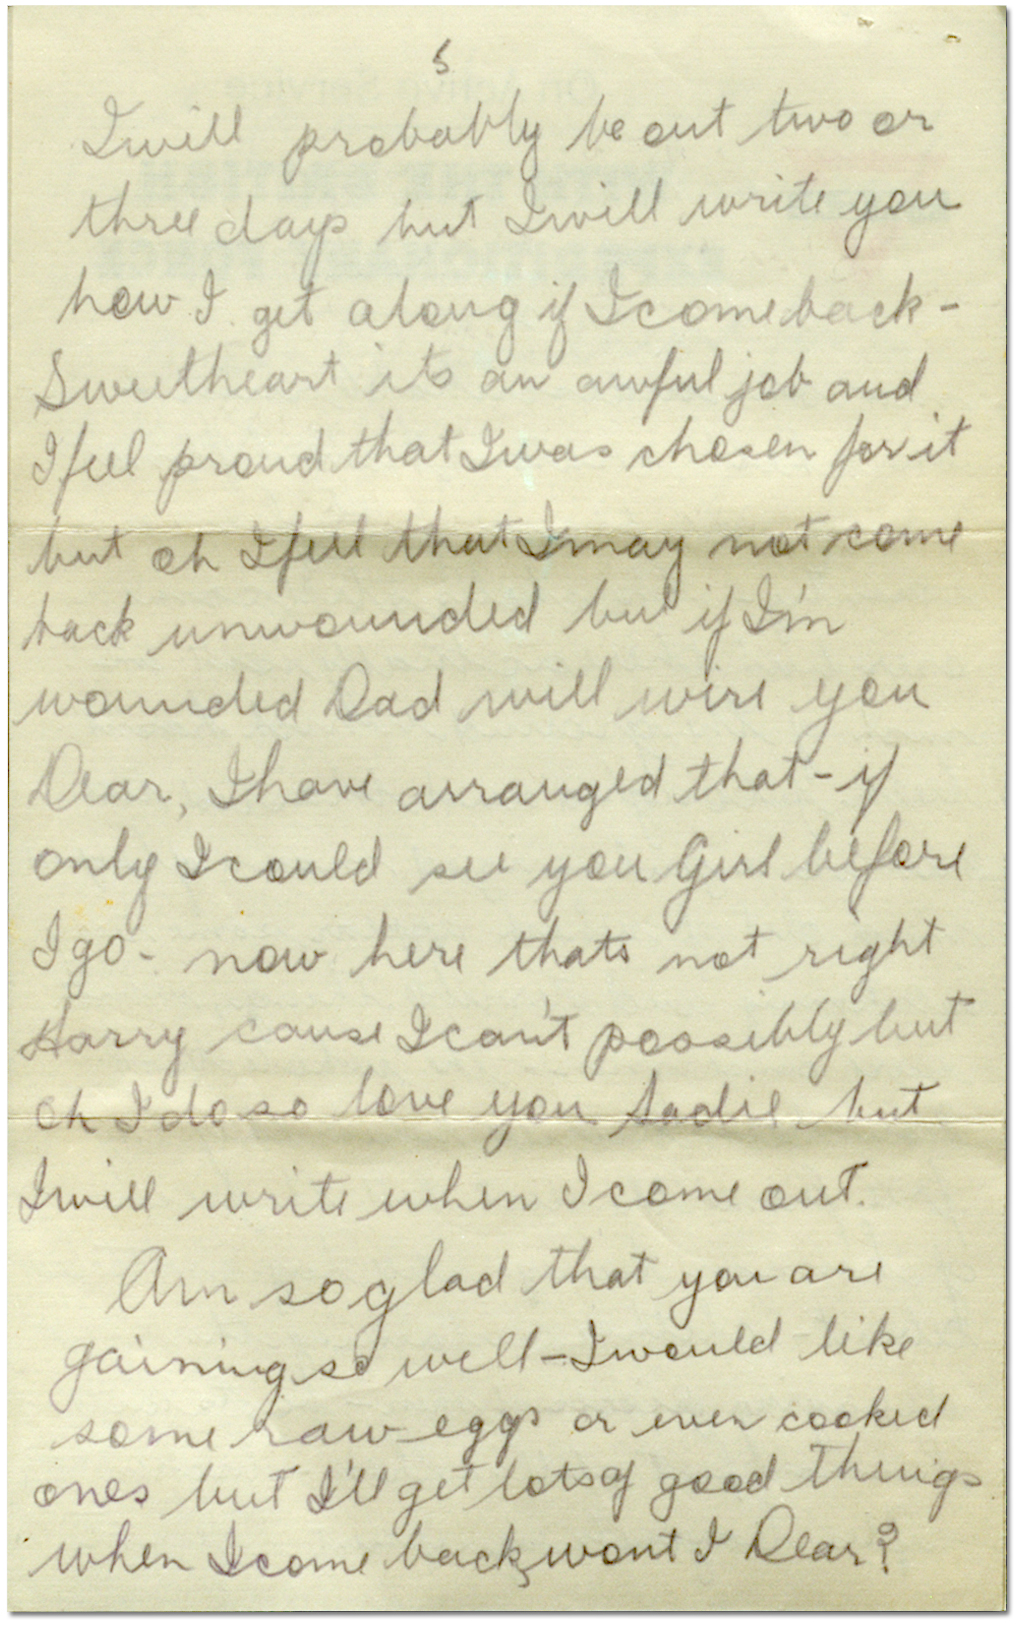 5
I will probably be out two or
three days but I will write you
how I get along if I come back -
Sweetheart its an awful job and
I feel proud that I was chosen for it
but oh I feel that I may not come
back unwounded but if I'm
wounded Dad will wire you
Dear, I have arranged that - if
only I could see you Girl before
I go - now here thats not right
Harry cause I can't possibly but
oh I do so love you Sadie but
I will write when I come out.
Am so glad that you are
gaining so well - I would like
some raw eggs or even cooked
ones but I'll get lots of good things
when I come back, wont I Dear?